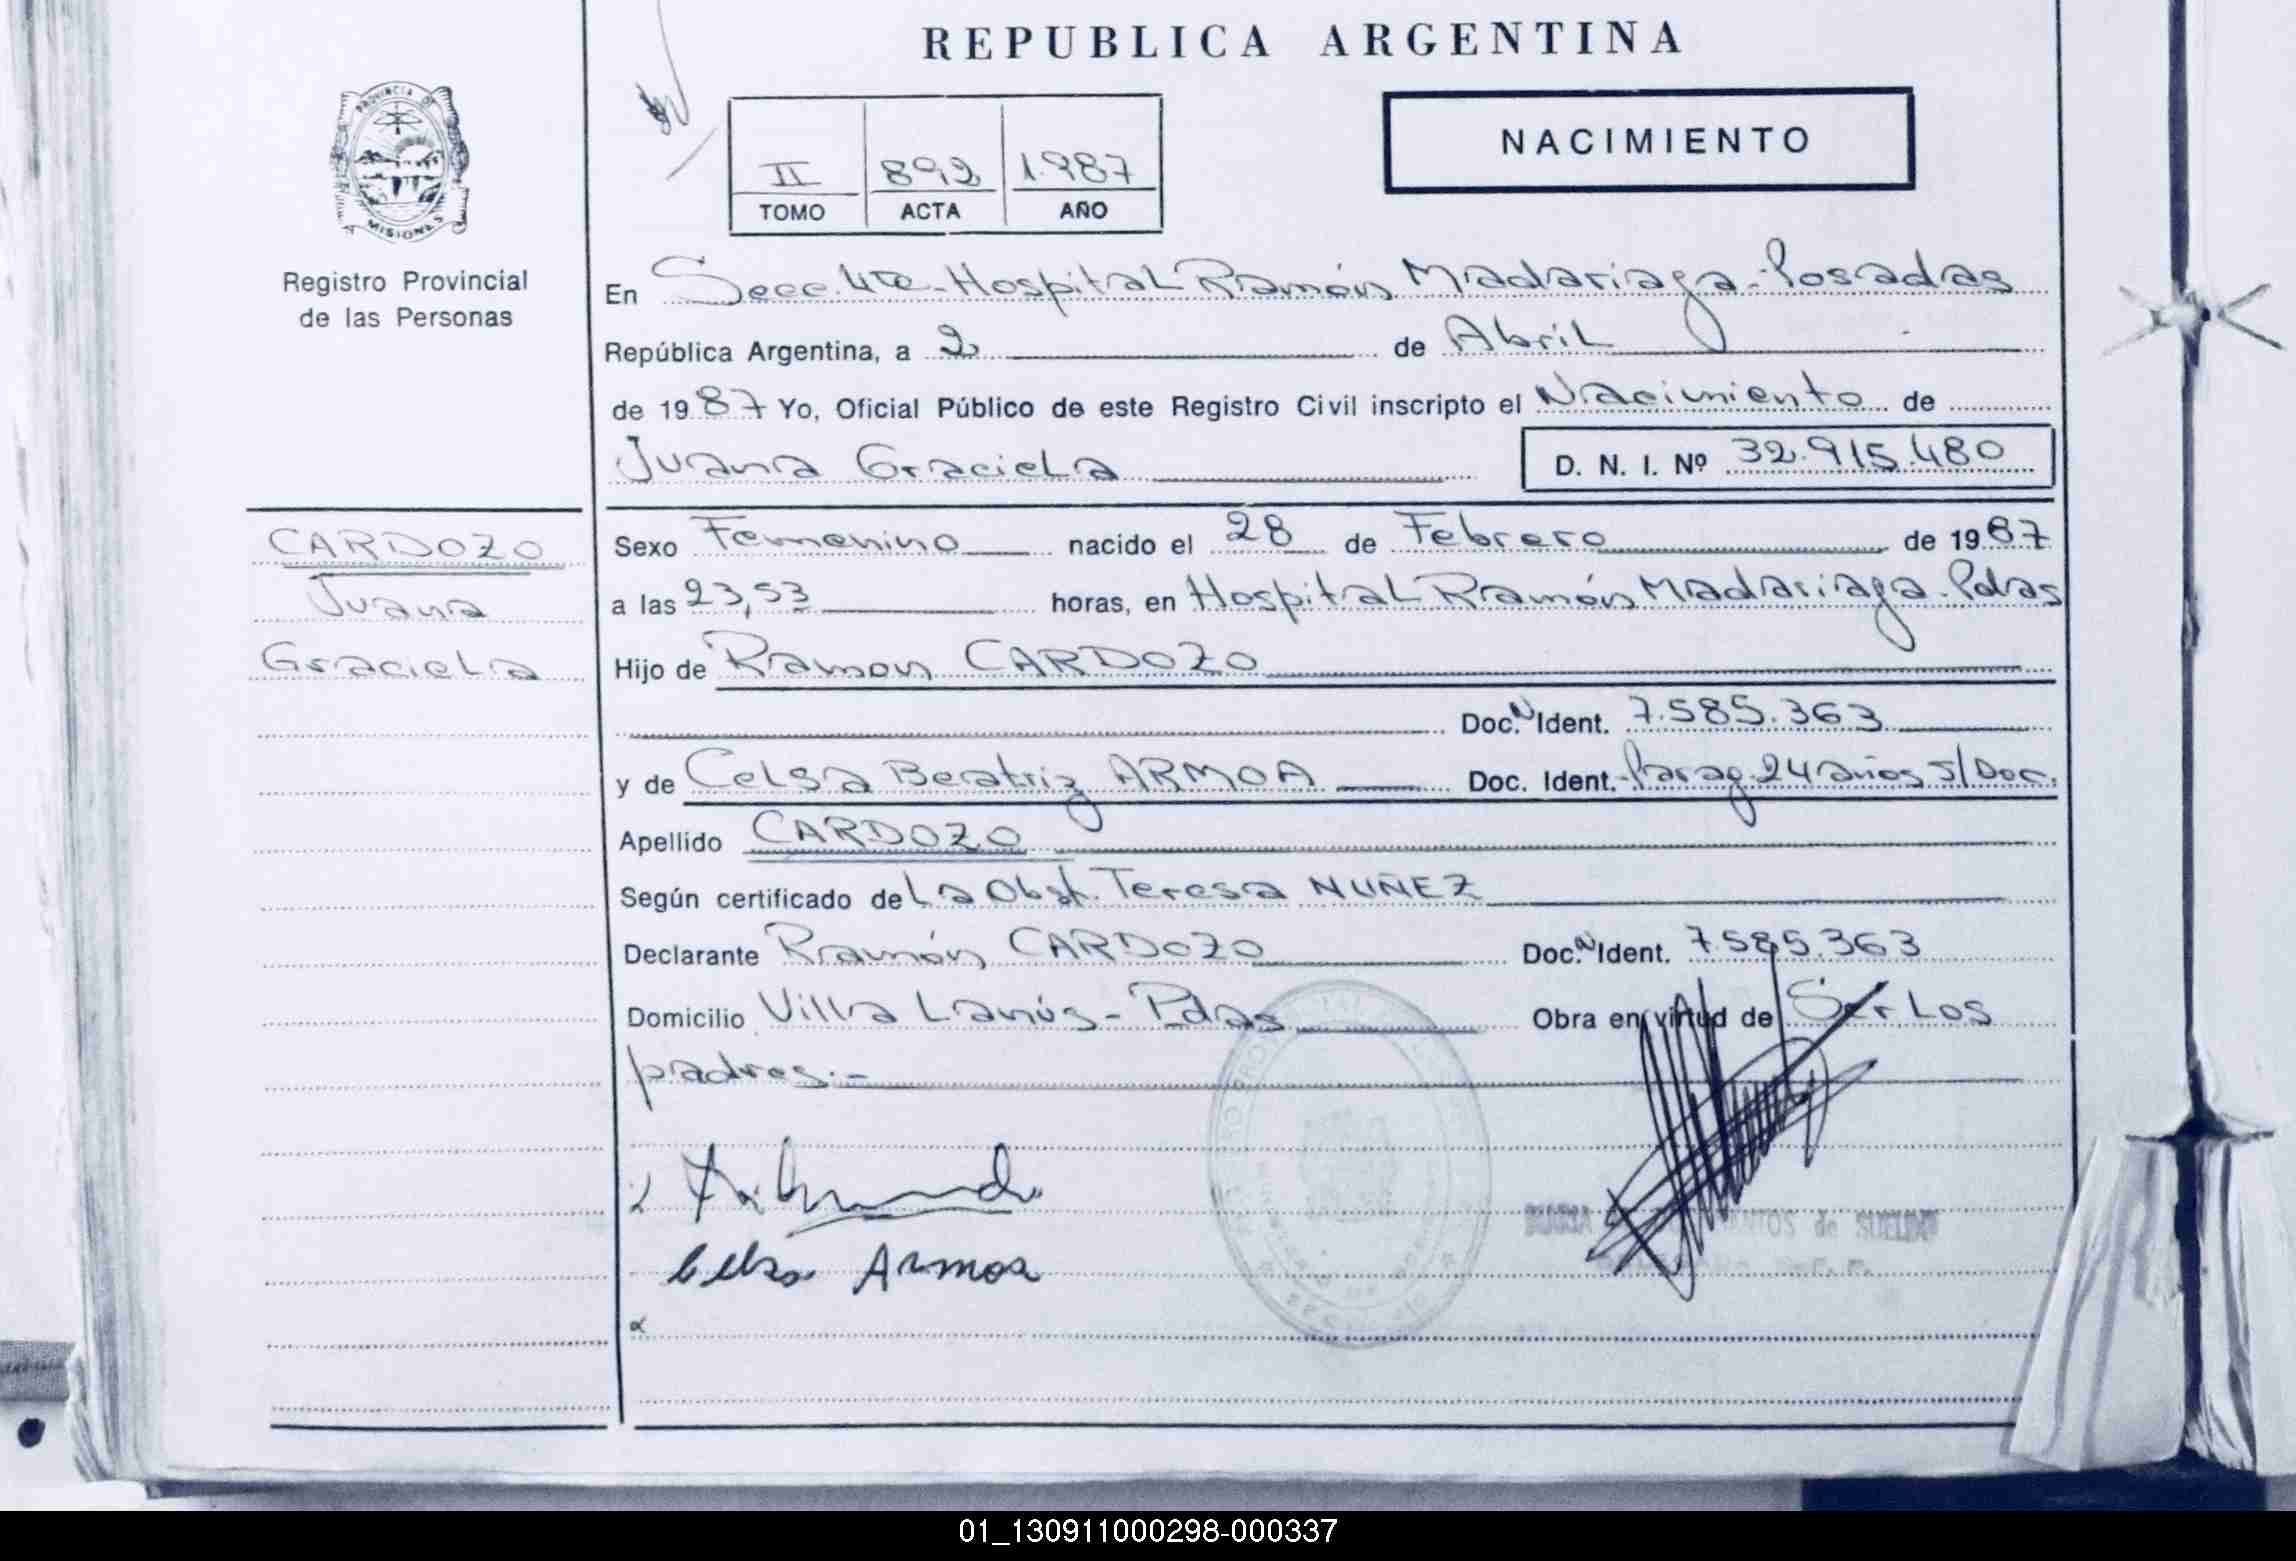 REPUBLICA ARGENTINA
PROVINCIA DE
MISIONES
Registro Provincial
de las Personas
II 892 1.987
TOMO ACTA AÑO
NACIMIENTO
En Secc. 4ta. Hospital Ramón Madariaga - Posadas
República Argentina, a 2 de Abril
de 1987 Yo, Oficial Público de este Registro Civil inscripto el Nacimiento de
Juana Graciela D. N. I. Nº 32.915.480
CARDOZO
Juana
Graciela
Sexo Femenino nacido el 28 de Febrero de 1987
a las 23,53 horas, en Hospital Ramón Madariaga - Pdas
Hijo de Ramon CARDOZO
Doc. N Ident. 7.585.363
y de Celsa Beatriz ARMOA Doc. Ident. Parag. 24 años s/Doc.
Apellido CARDOZO
Según certificado de La Obst. Teresa NUÑEZ
Declarante Ramón CARDOZO Doc. N Ident. 7.585.363
Domicilio Villa Lanús - Pdas Obra en virtud de Ser Los
padres.-
Celsa Armoa
de SUELDO
01_130911000298-000337